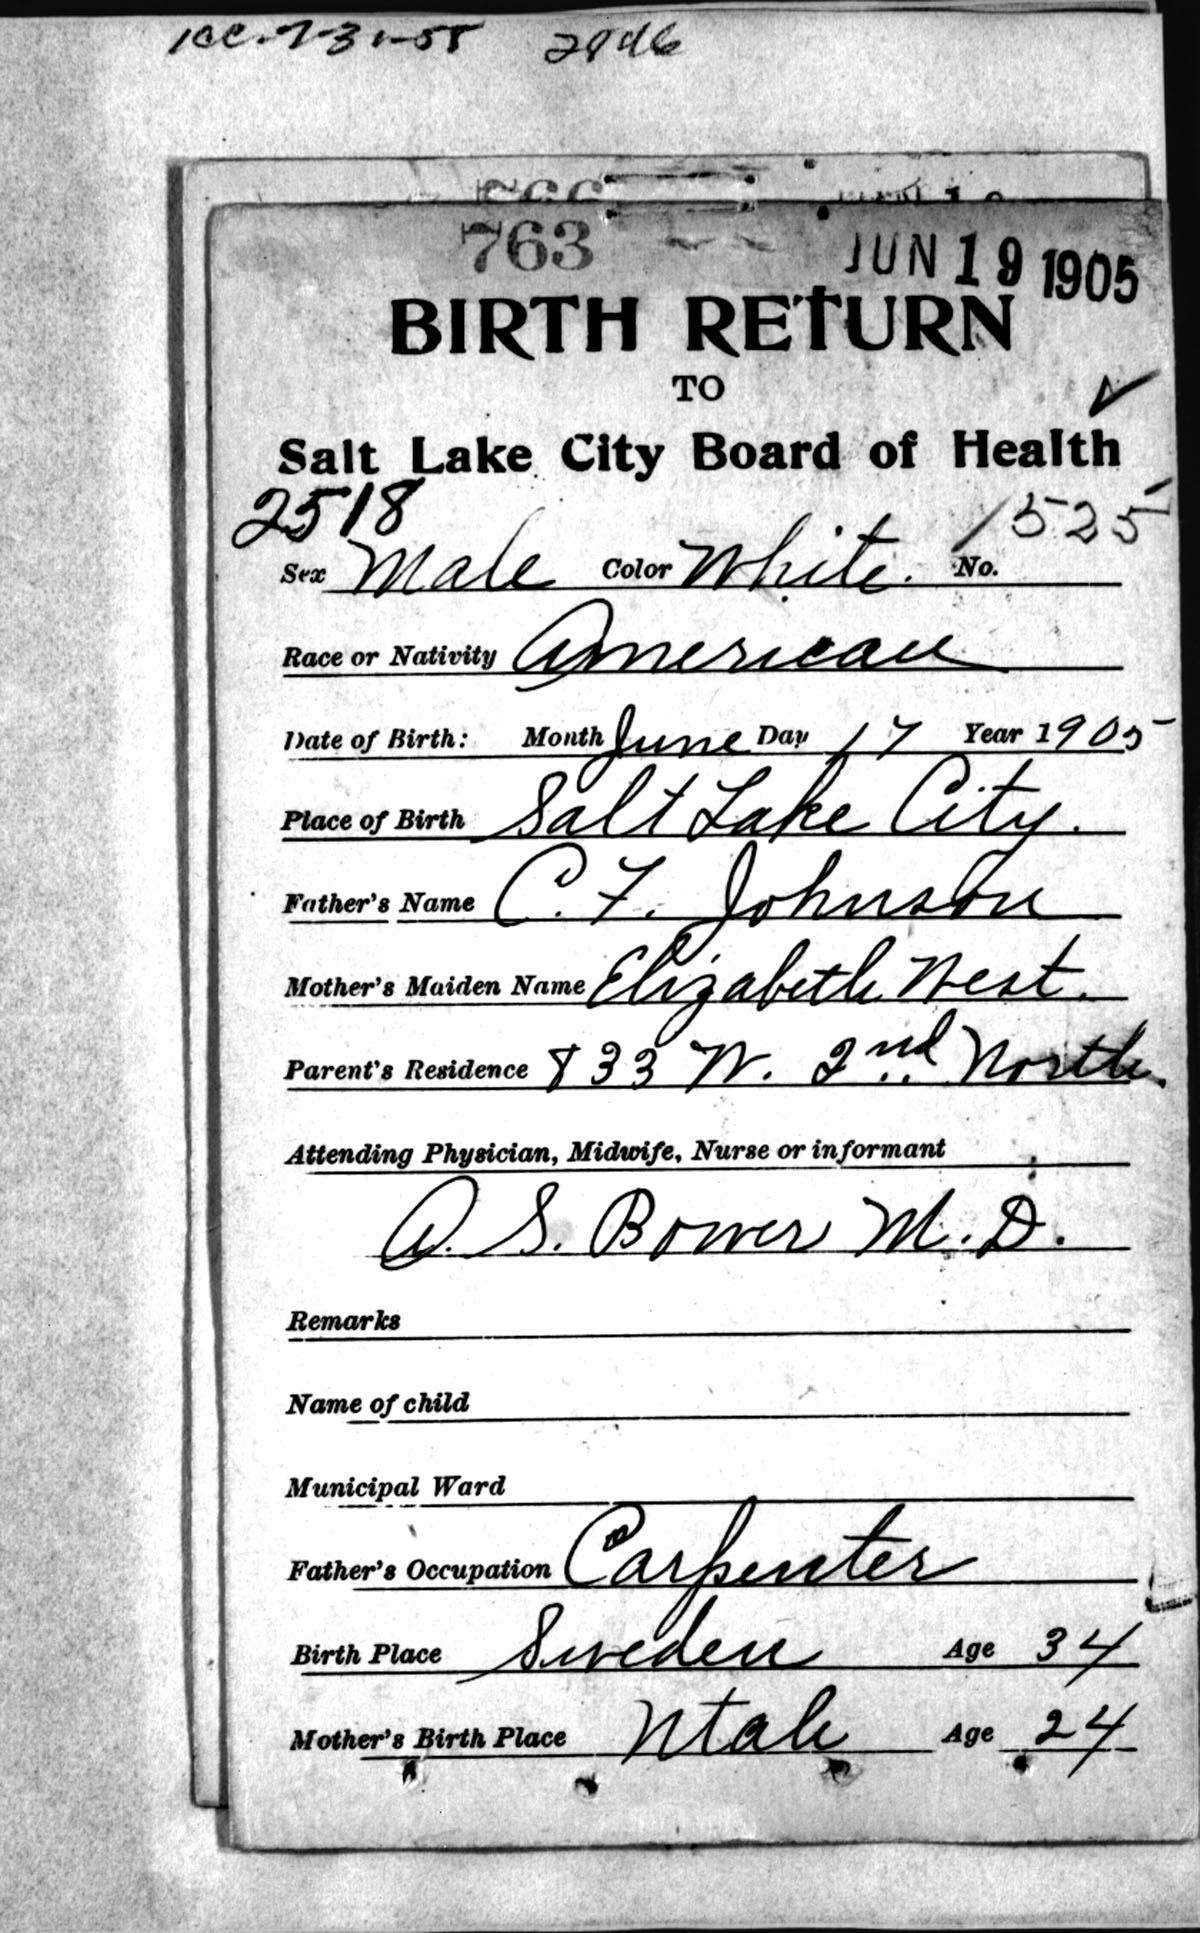 2946
763 JUN 19 1905
BIRTH RETURN
TO
Salt Lake City Board of Health
2518 1525
Sex Male Color White. No.
Race or Nativity American
Date of Birth: Month June Day 17 Year 1905
Place of Birth Salt Lake City.
Father's Name C. F. Johnson
Mother's Maiden Name Elizabeth West.
Parent's Residence 833 W. 2nd North.
Attending Physician, Midwife, Nurse or informant
A. S. Bower M. D.
Remarks
Name of child
Municipal Ward
Father's Occupation Carpenter
Birth Place Sweden Age 34
Mother's Birth Place Utah Age 24